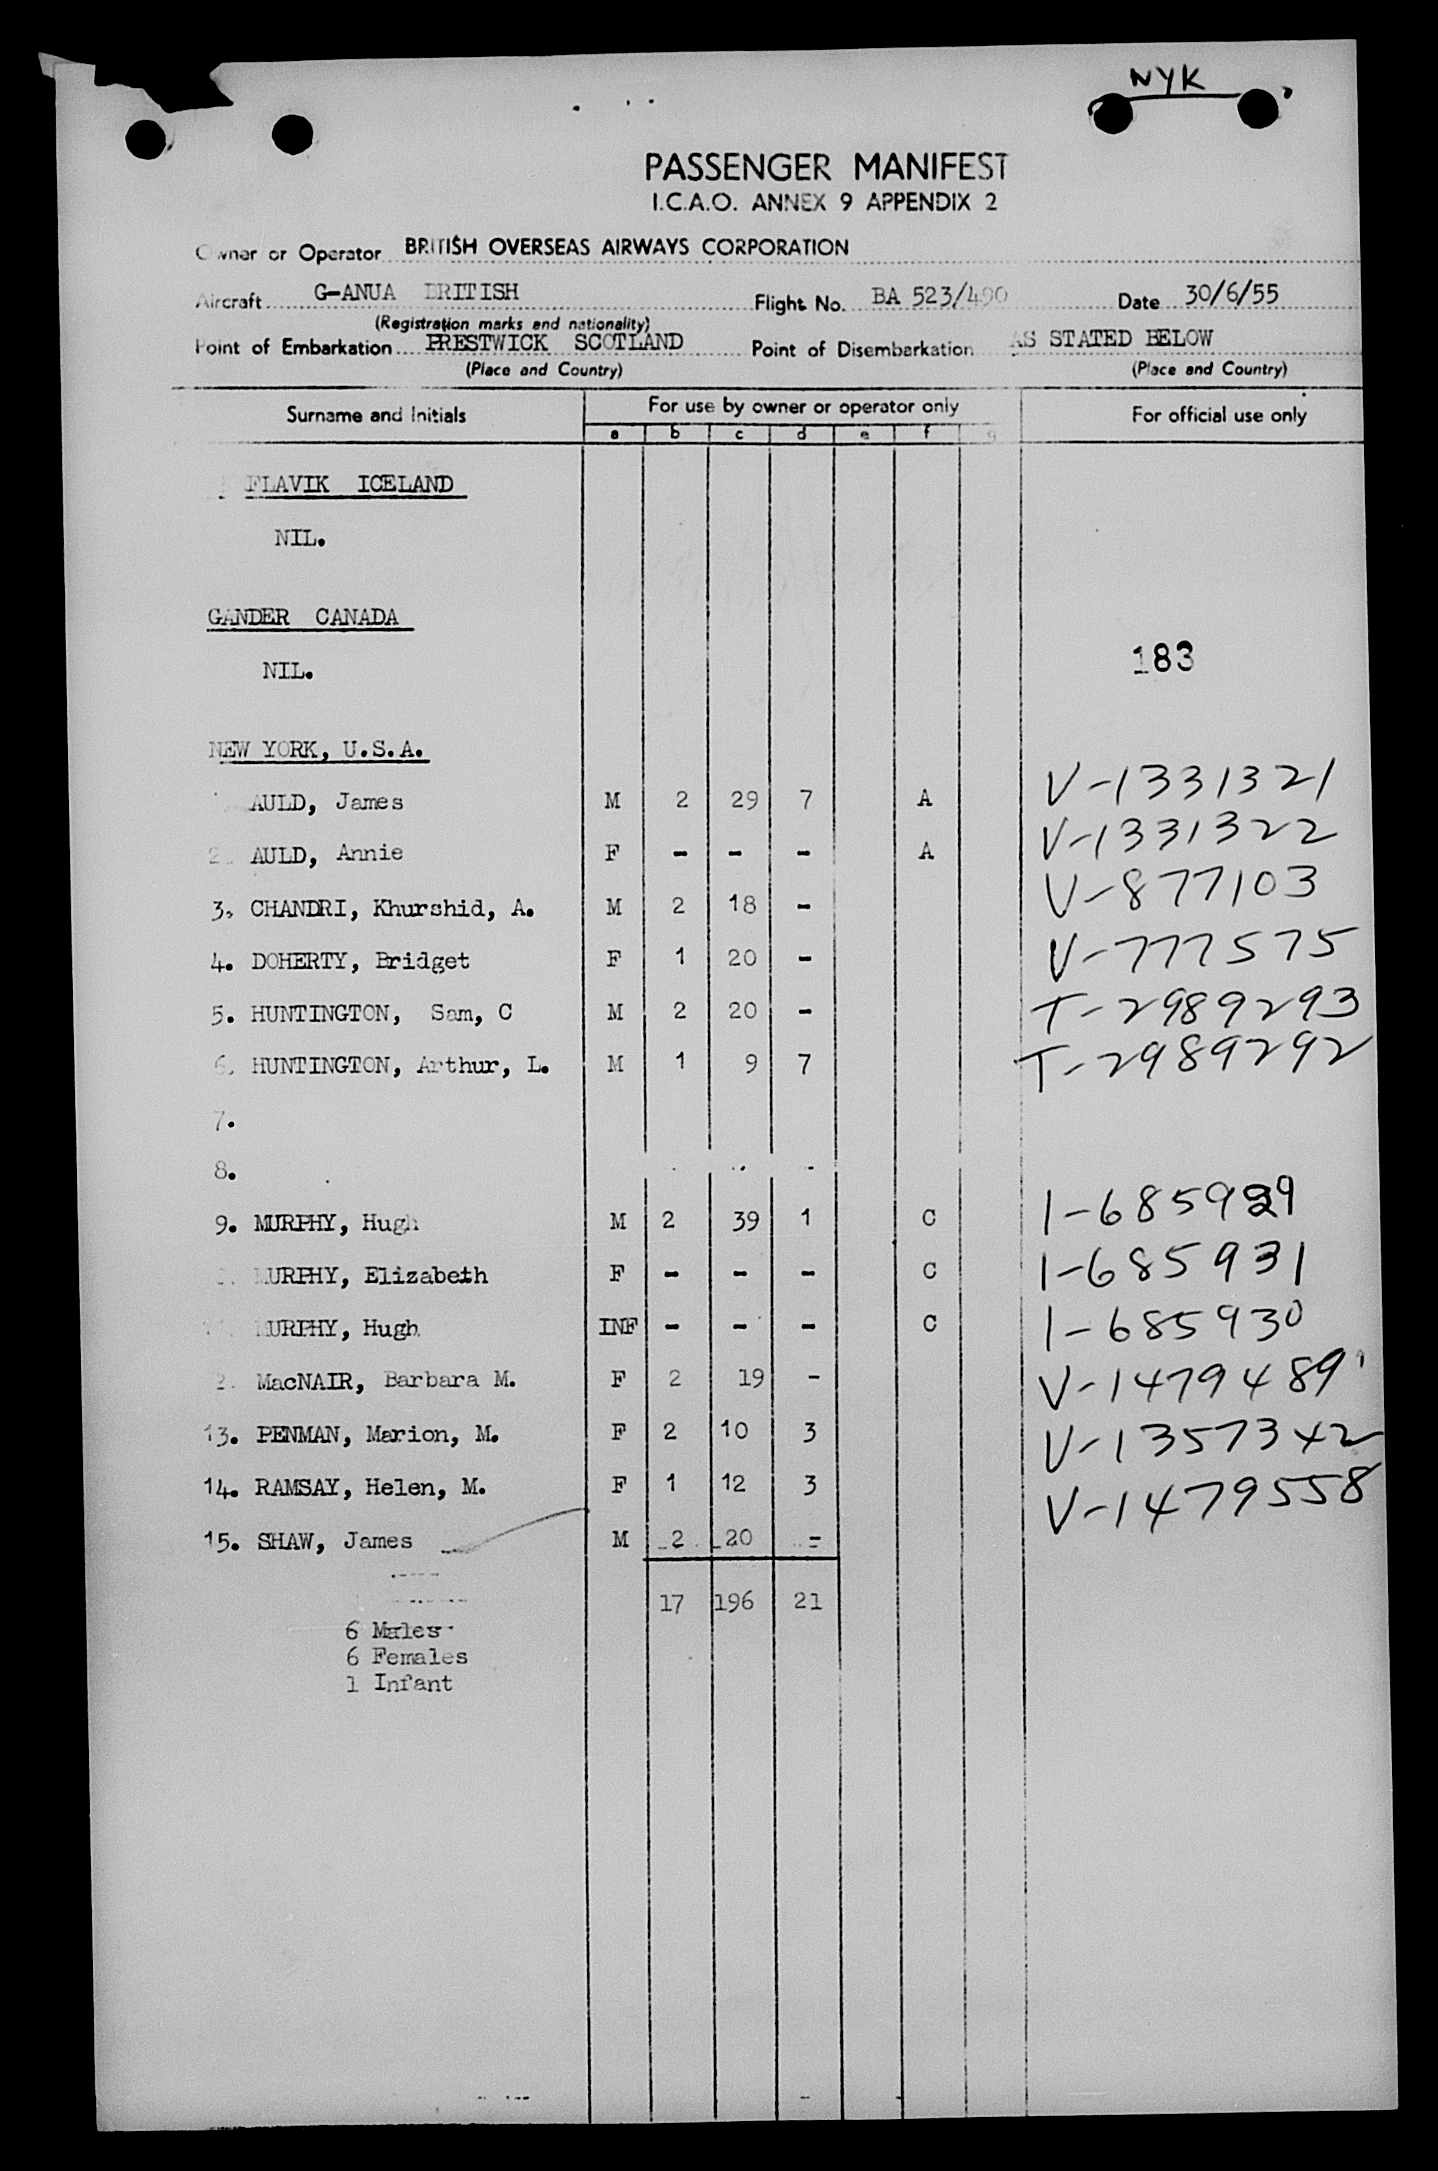 NYK
PASSENGER MANIFEST
I.C.A.O. ANNEX 9 APPENDIX 2
Owner or Operator BRITISH OVERSEAS AIRWAYS CORPORATION
Aircraft G-ANUA BRITISH Flight No. BA 523/490 Date 30/6/55
(Registration marks and nationality)
Point of Embarkation PRESTWICK SCOTLAND Point of Disembarkation AS STATED BELOW
(Place and Country) (Place and Country)
Surname and Initials For use by owner or operator only For official use only
a b c d e f g
FLAVIK ICELAND
NIL.
GANDER CANADA
NIL. 183
NEW YORK, U.S.A.
AULD, James M 2 29 7 A V-1331321
2. AULD, Annie F - - - A V-1331322
3. CHANDRI, Khurshid, A. M 2 18 - V-877103
4. DOHERTY, Bridget F 1 20 - V-777575
5. HUNTINGTON, Sam, C M 2 20 - T-2989293
6. HUNTINGTON, Arthur, L. M 1 9 7 T-2989292
7.
8.
9. MURPHY, Hugh M 2 39 1 C 1-685929
MURPHY, Elizabeth F - - - C 1-685931
MURPHY, Hugh INF - - - C 1-685930
2. MacNAIR, Barbara M. F 2 19 - V-1479489
13. PENMAN, Marion, M. F 2 10 3 V-1357342
14. RAMSAY, Helen, M. F 1 12 3 V-1479558
15. SHAW, James M 2 20 -
17 196 21
6 Males
6 Females
1 Infant